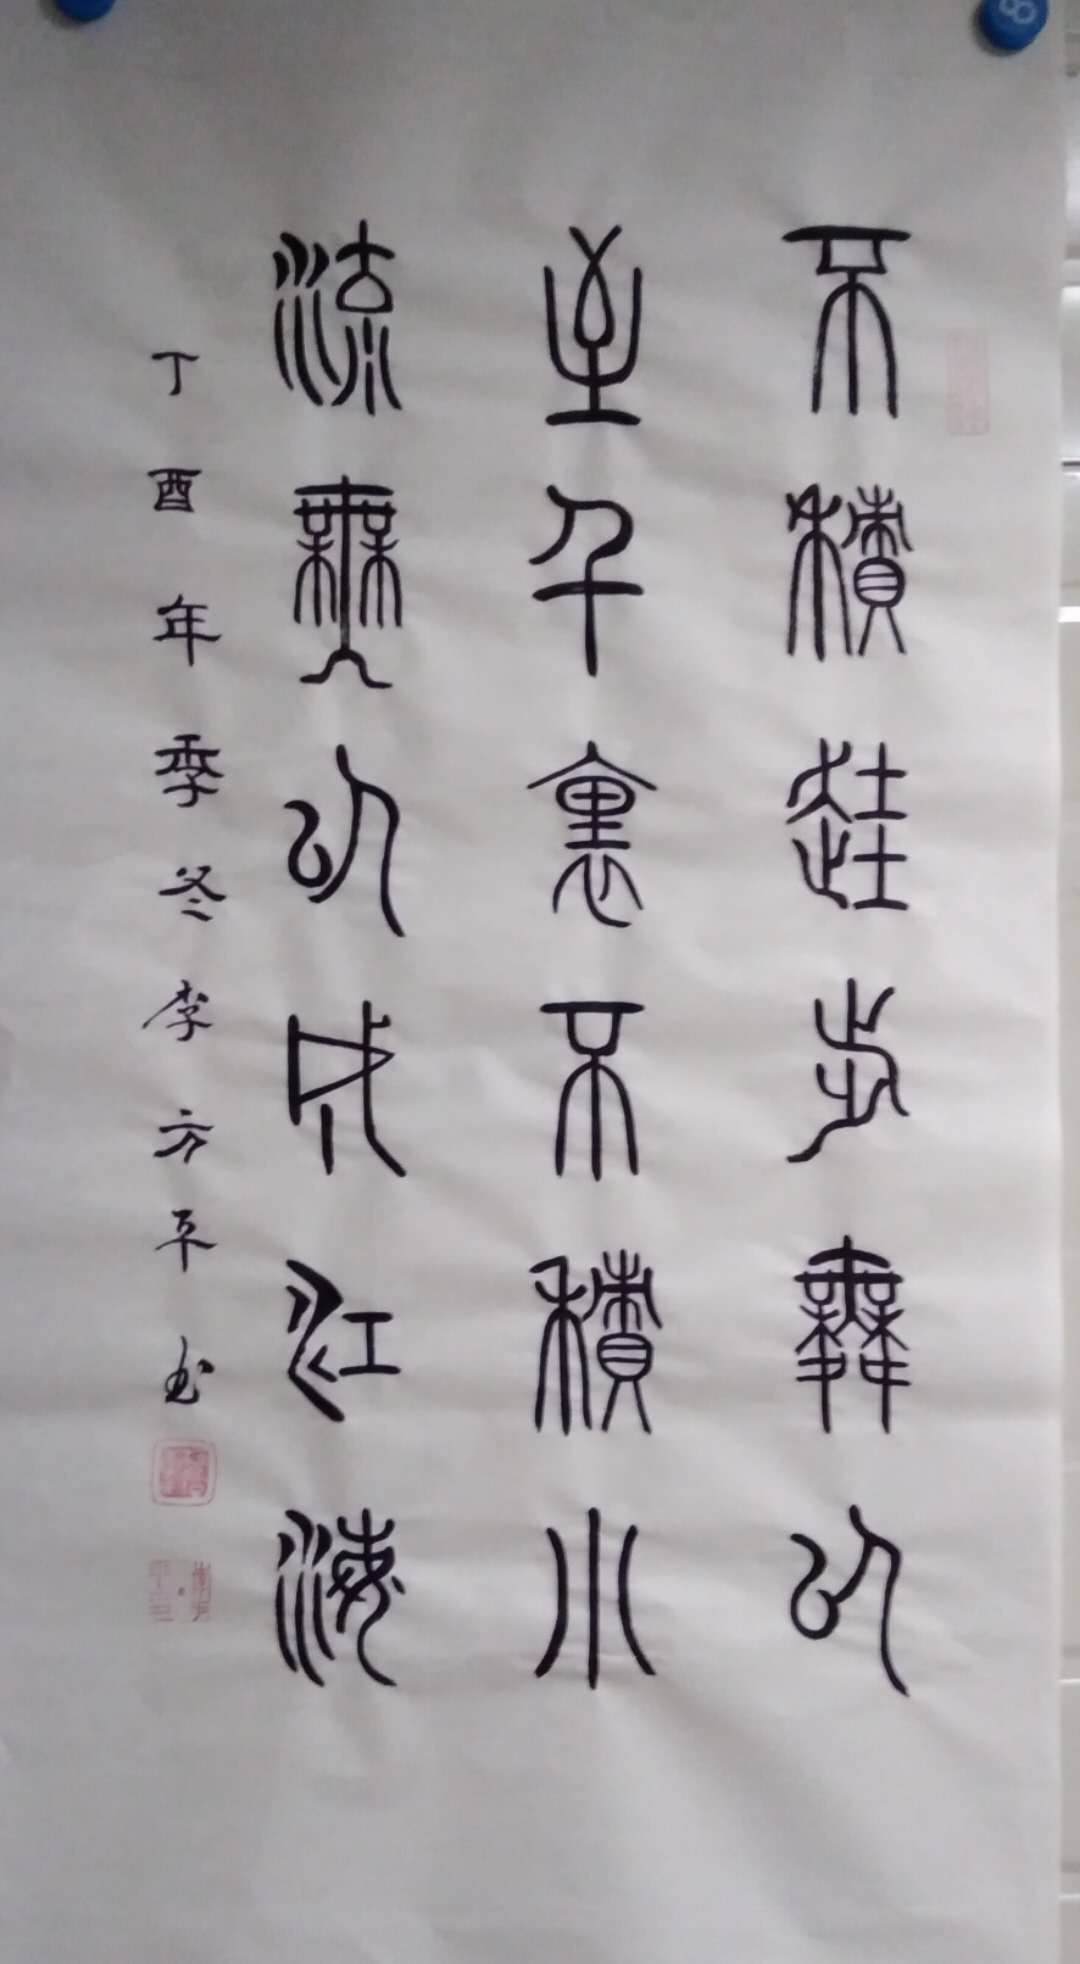 不積跬步舞以
至千裏不積水
流無以成江海
丁酉年季冬李方平书